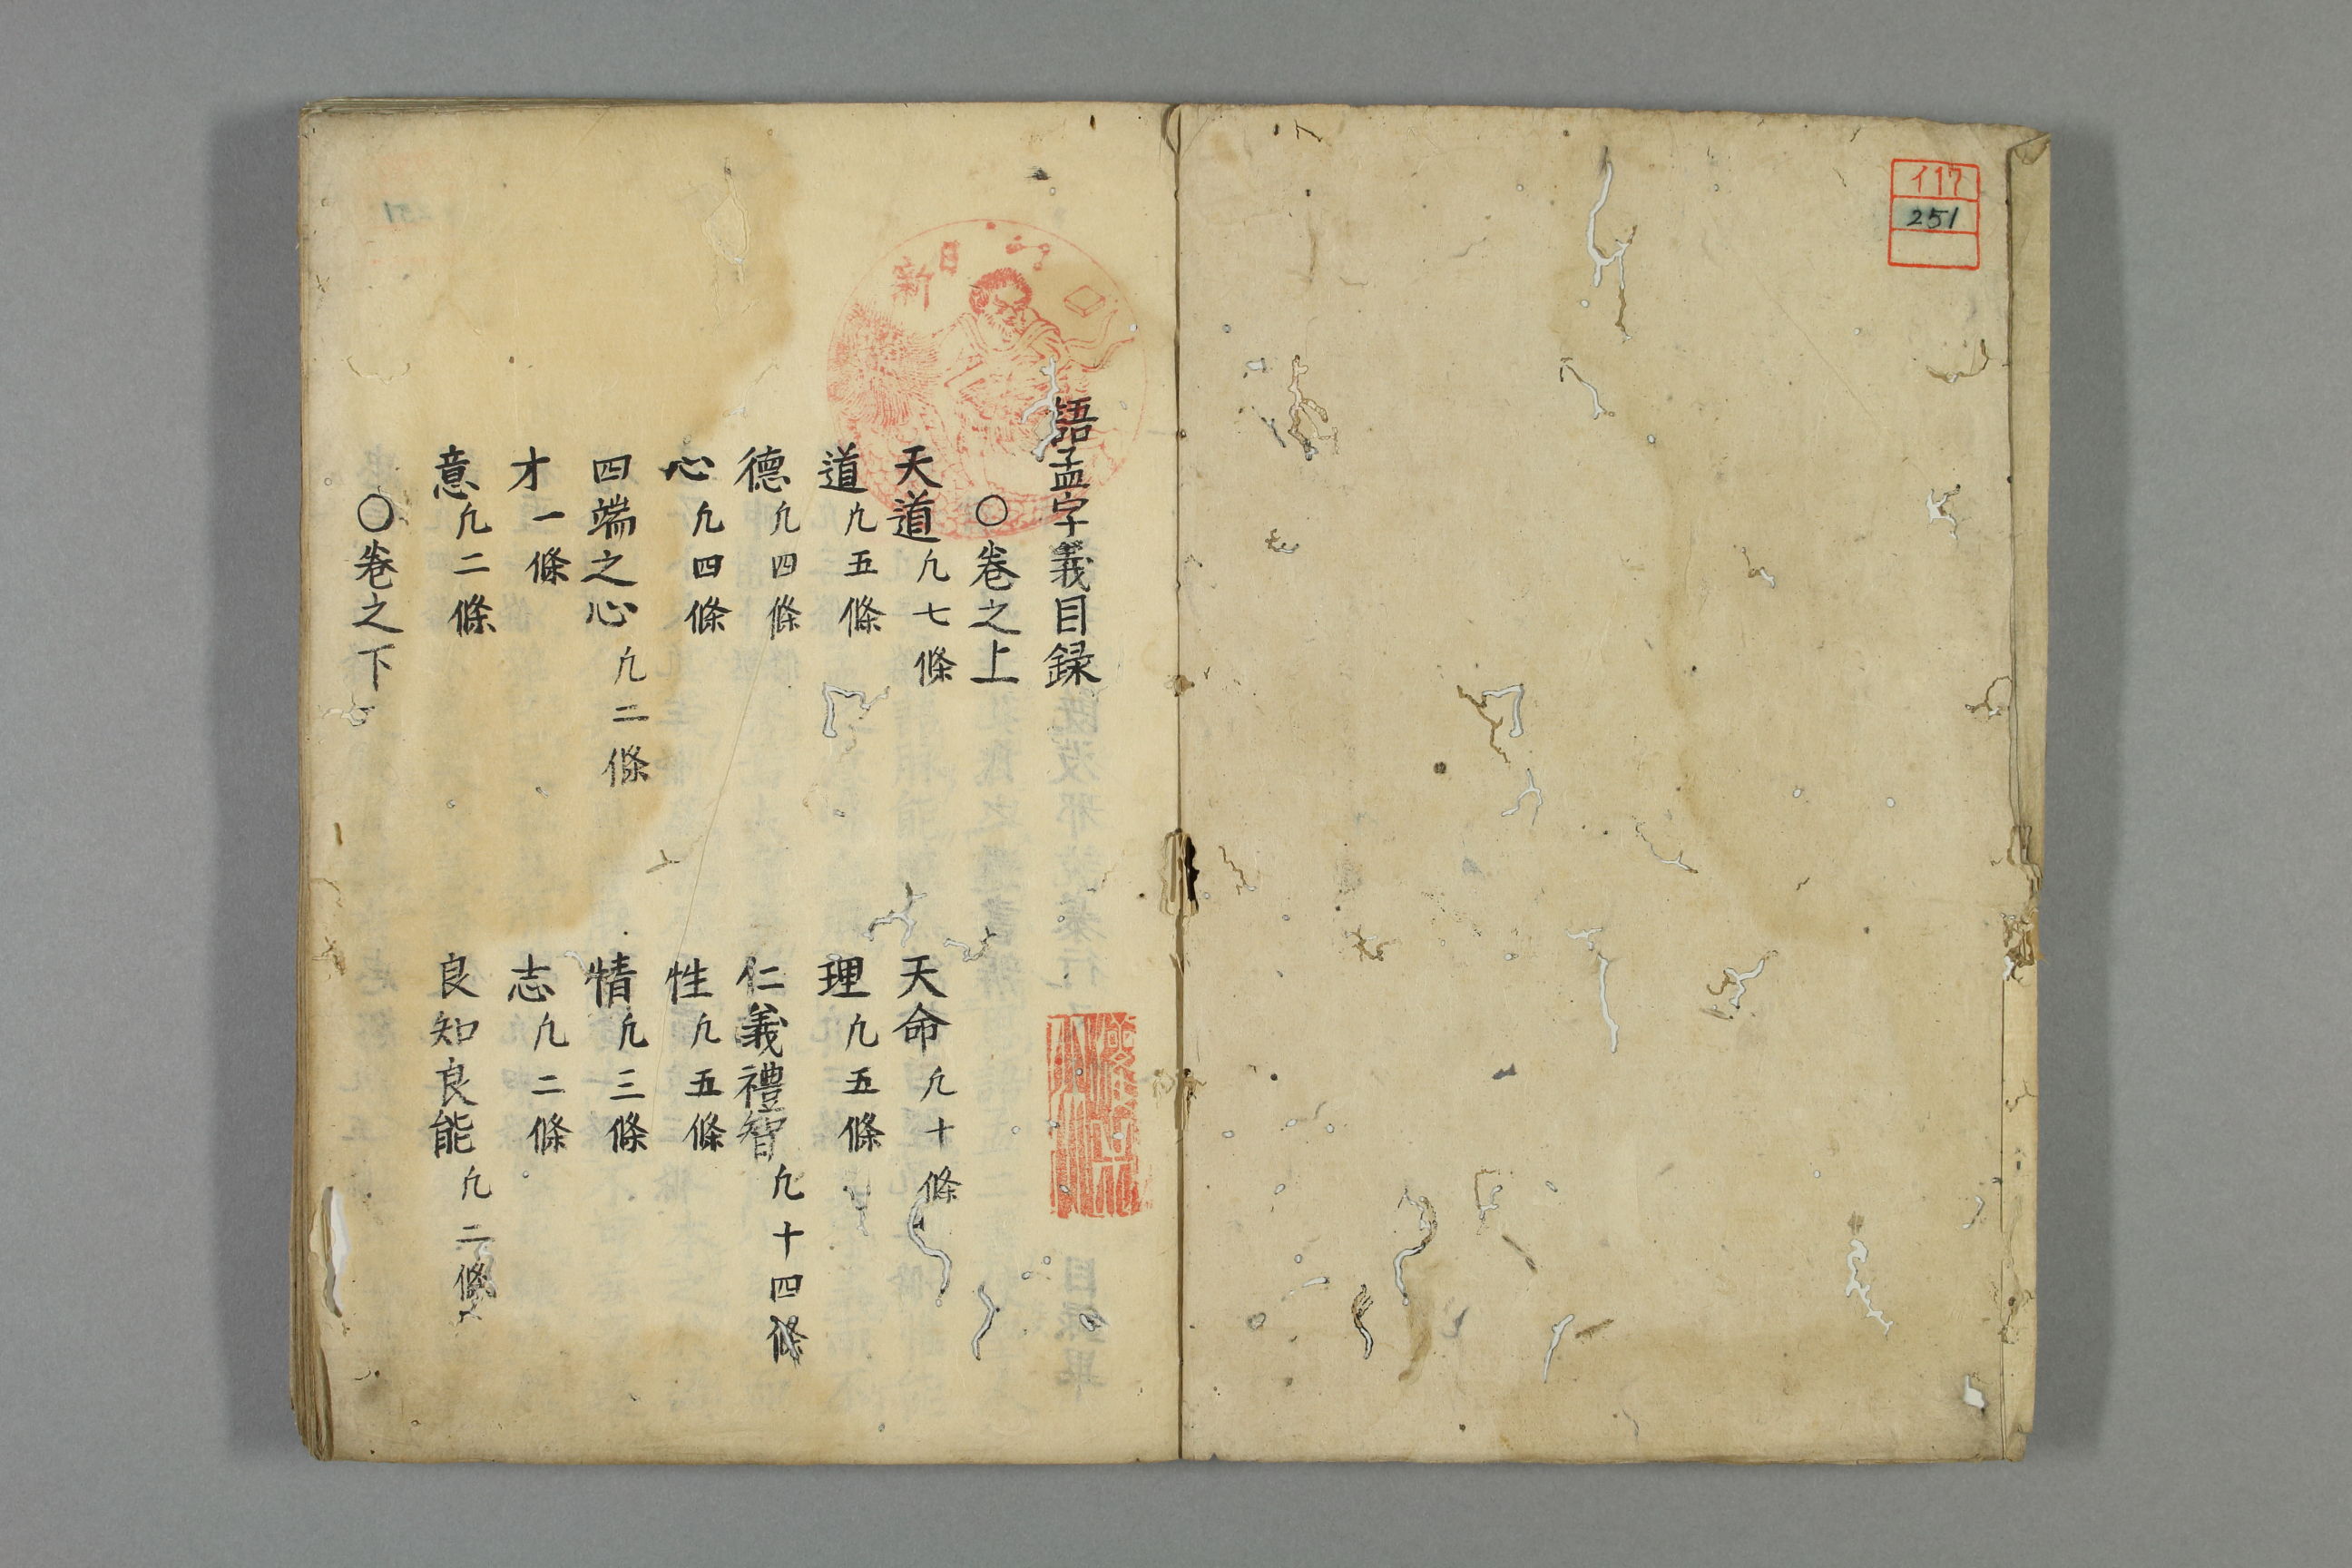 117
251
語孟字義目録
○卷之上
天道凢七條 天命凢十條
道凢五條 理凢五條
德凢四條 仁義禮智凢十四條
心凢四條 性凢五條
四端之心凢二條 情凢三條
才一條 志凢二條
意凢二條 良知良能凢二條
○卷之下